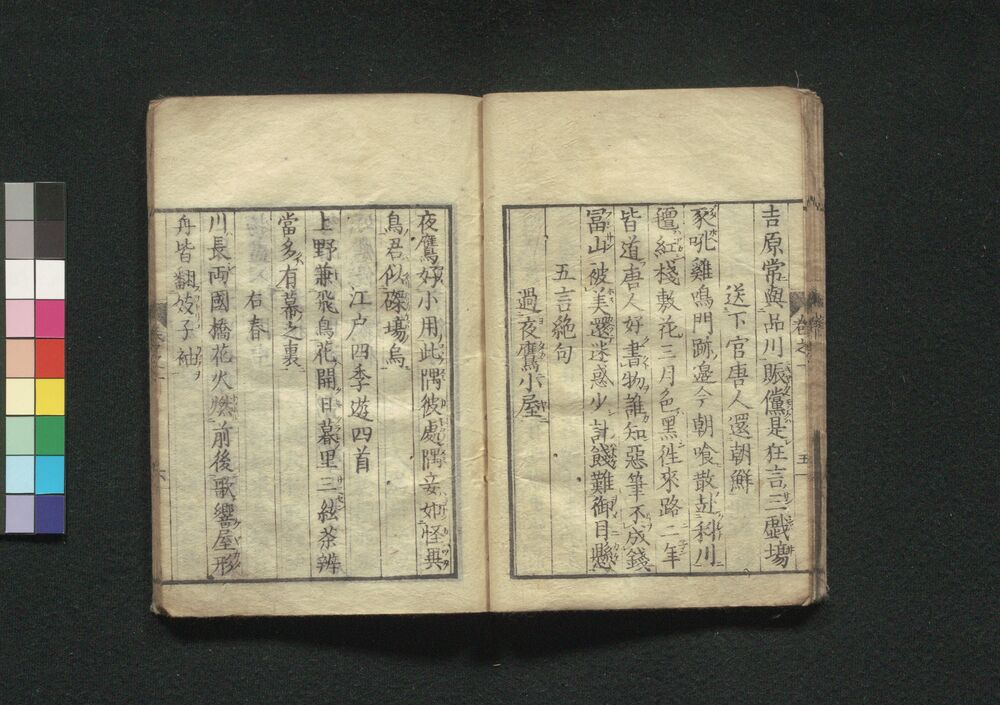 吉原常與品川賑儻是狂言三戯場
送下官唐人還朝鮮
豕吼雞鳴門跡邉今朝喰散赴利川
氊紅棧敷花三月色黒徃來路二年
皆道唐人好書物誰知惡筆不成錢
冨山被美還迷惑少計餞難御目懸
五言絶句
過夜鷹小屋
夜鷹好小用此隅彼處隅妾如怪與
鳥君似磔塲烏
江戸四季遊四首
上野兼飛鳥花開日暮里三絃茶辨
當多有幕之裏
右春
川長両國橋花火燃前後歌響屋形
舟皆翻妓子袖